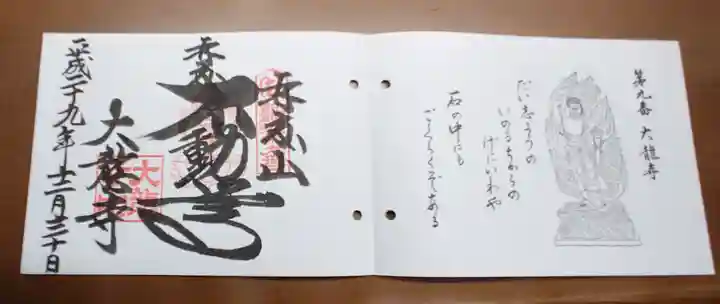 第九番 大龍寺
だい志やうの
いのるちからの
げにいわや
石の中にも
ごくらくぞある
再度山
不動尊
大龍寺
大龍
平成二十九年十二月三十日